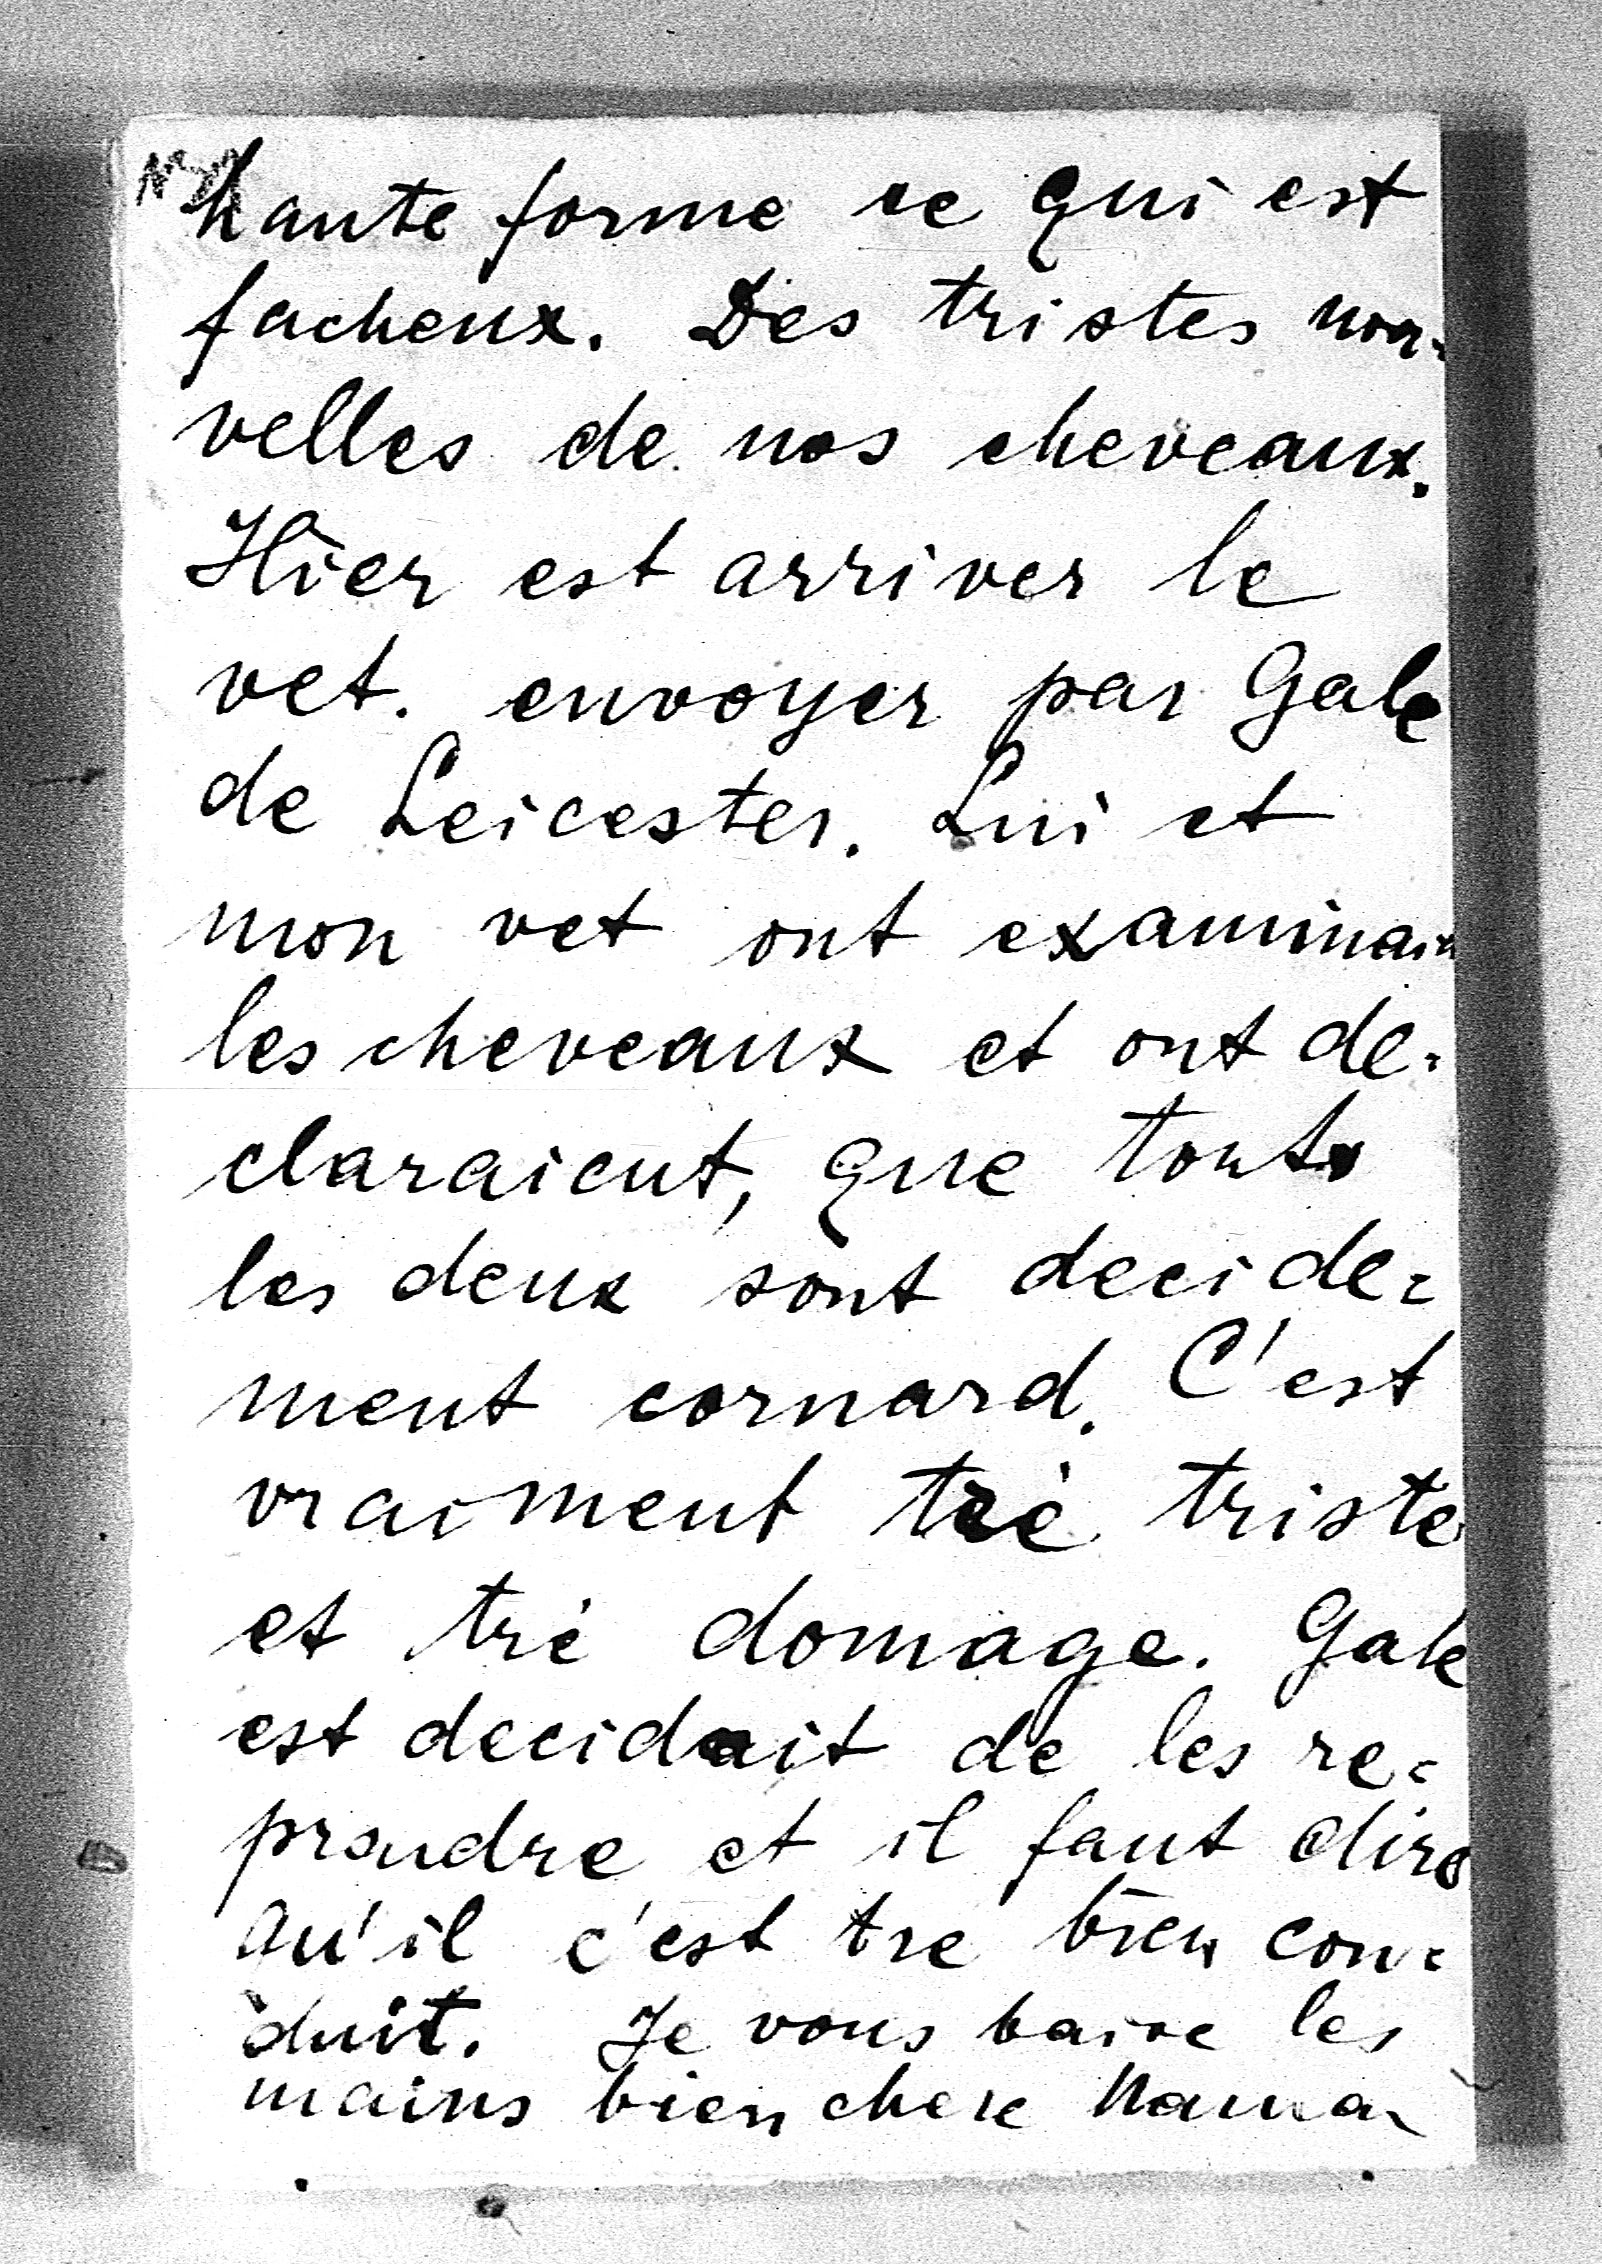 haute forme ce qui est
facheux. Des tristes nou=
velles de nos cheveaux.
Hier est arriver le
vet. envoyer par Gale
de Leicester. Lui et
mon vet ont examinait
les cheveaux et ont de=
claraient, que tout
les deux sont decide=
ment cornard. C'est
vraiment trè triste
et trè domage. Gale
est decidait de les re=
prendre et il faut dire
qu'il c'est tre bien con=
duit. Je vous baise les
mains bien chere Maman